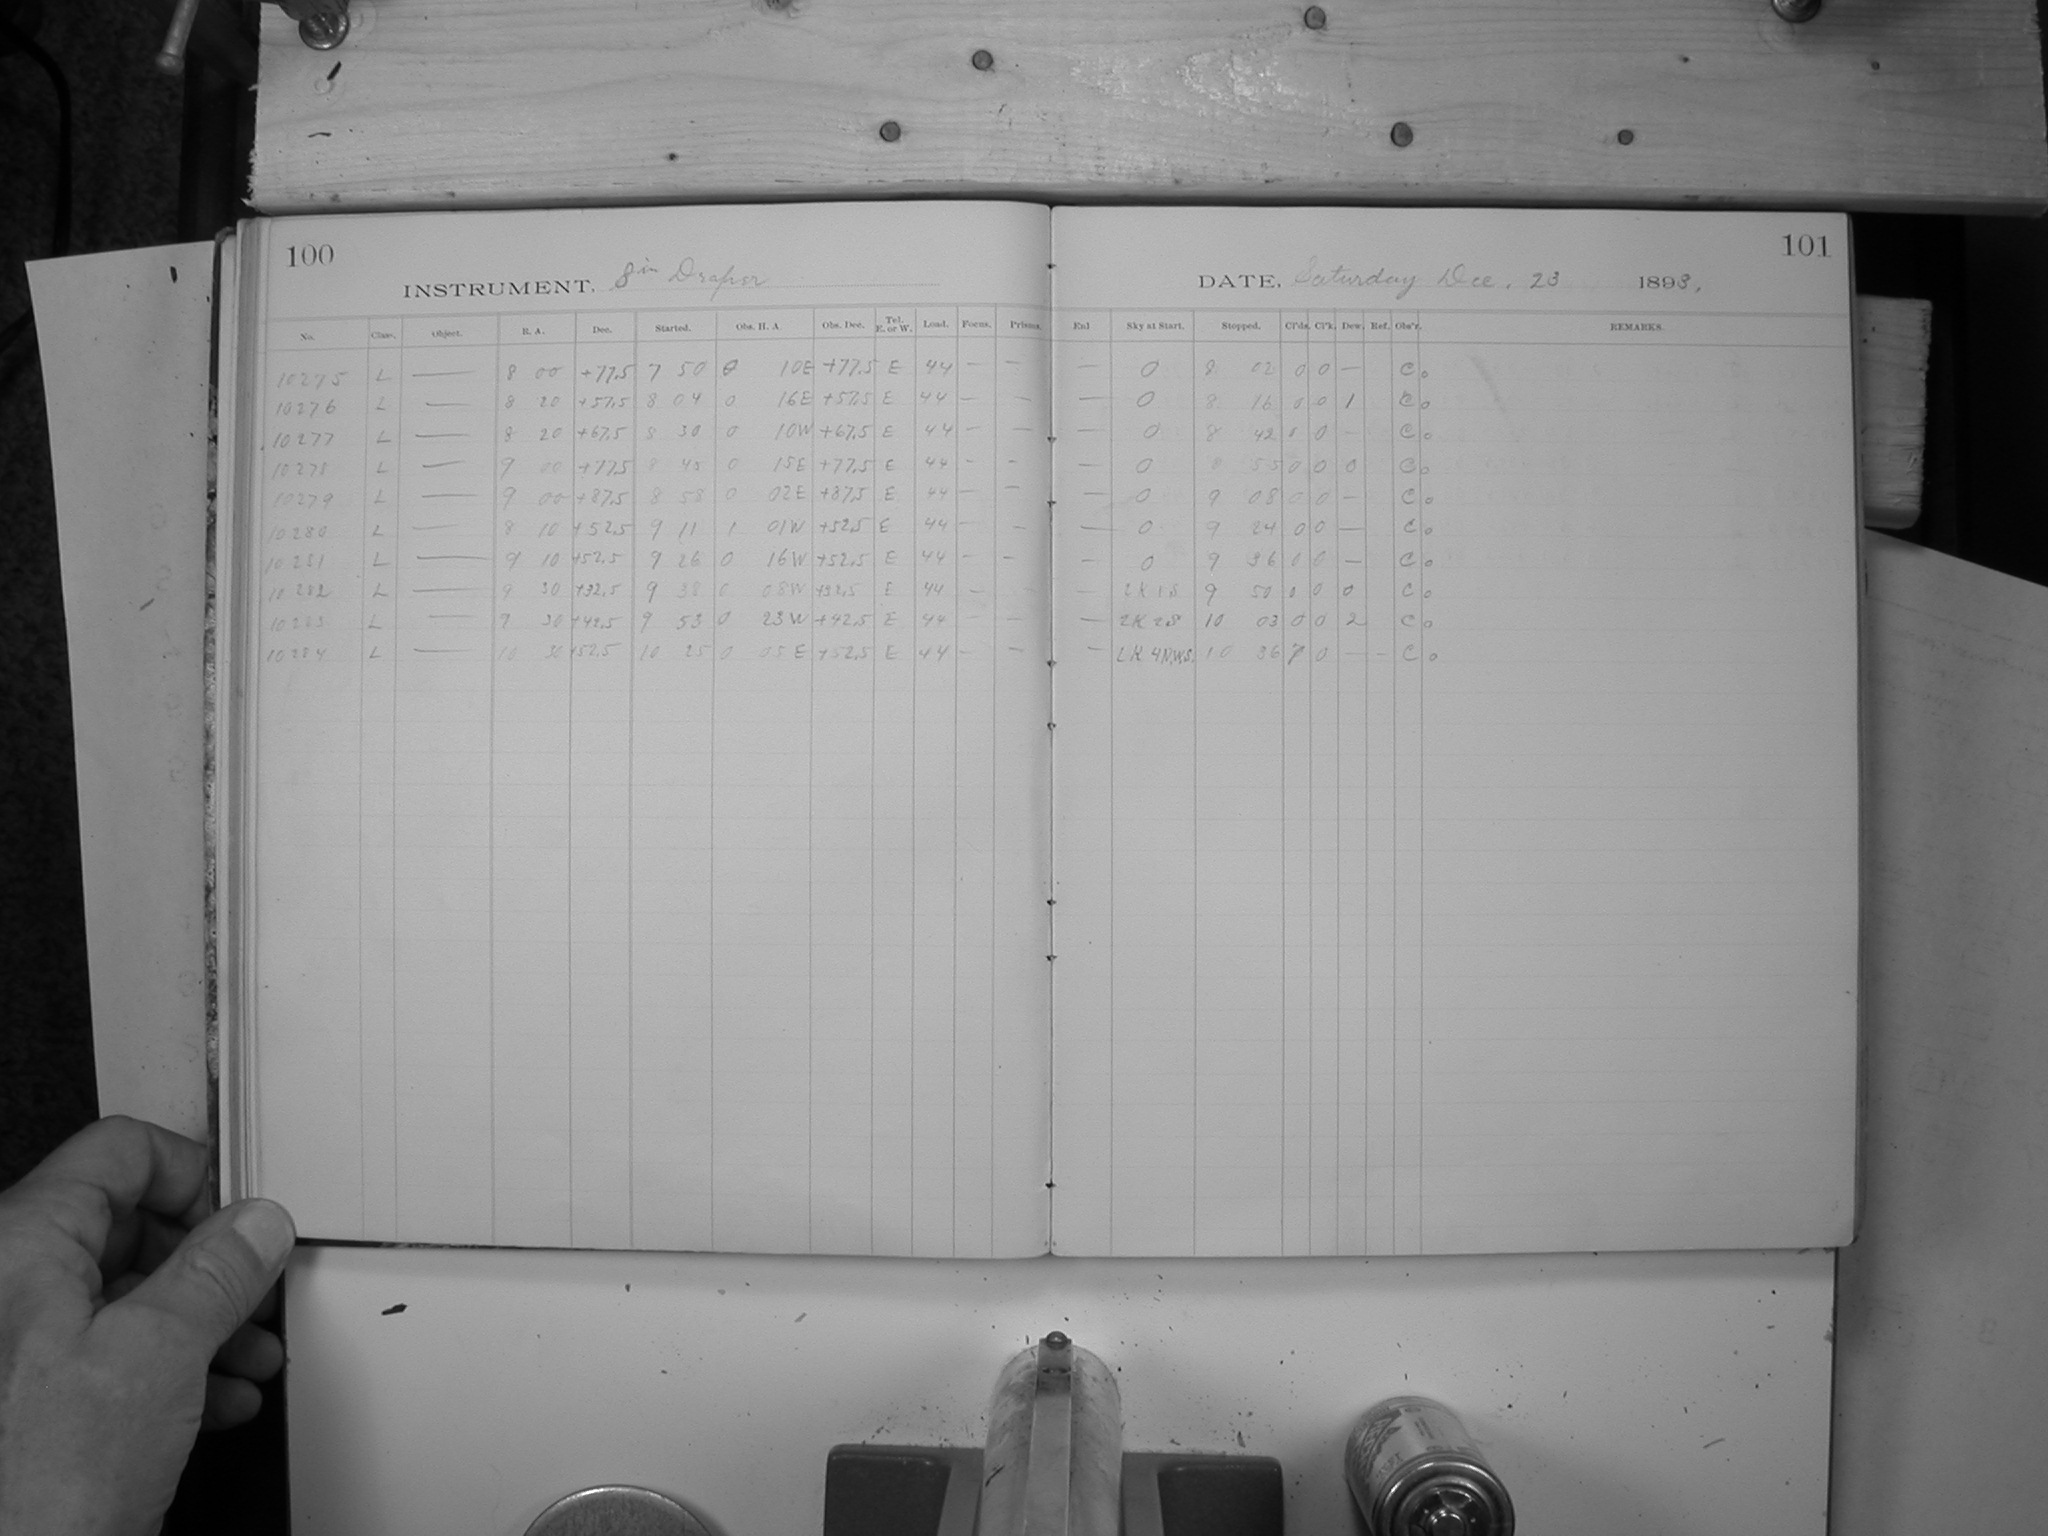 100
101
INSTRUMENT, 8 in Draper
DATE, Saturday Dec. 23 1893,
No. Class. Object. R. A. Dec. Started. Obs. H. A. Obs. Dec. Tel. E. or W. Load. Focus. Prisms. Exl Sky at Start. Stopped. Cl'ds. Cl'k. Dew. Ref. Obs'r. REMARKS.
10275 L — 8 00 +77.5 7 50 0 10E +77.5 E 44 — — — 0 8 02 0 0 — C.
10276 L — 8 20 +57.5 8 04 0 16E +57.5 E 44 — — — 0 8 16 0 0 1 C.
10277 L — 8 20 +67.5 8 30 0 10W +67.5 E 44 — — — 0 8 42 0 0 — C.
10278 L — 9 00 +77.5 8 45 0 15E +77.5 E 44 — — — 0 8 55 0 0 0 C.
10279 L — 9 00 +87.5 8 58 0 02E +87.5 E 44 — — — 0 9 08 0 0 — C.
10280 L — 8 10 +52.5 9 11 1 01W +52.5 E 44 — — — 0 9 24 0 0 — C.
10281 L — 9 10 +52.5 9 26 0 16W +52.5 E 44 — — — 0 9 36 0 0 — C.
10282 L — 9 30 +32.5 9 38 0 08W +32.5 E 44 — — — 2K 1S 9 50 0 0 0 C.
10283 L — 9 30 +42.5 9 53 0 23W +42.5 E 44 — — — 2K 2S 10 03 0 0 2 C.
10284 L — 10 30 +52.5 10 25 0 05E +52.5 E 44 — — — 2K 4N.W.S. 10 36 7 0 — — C.